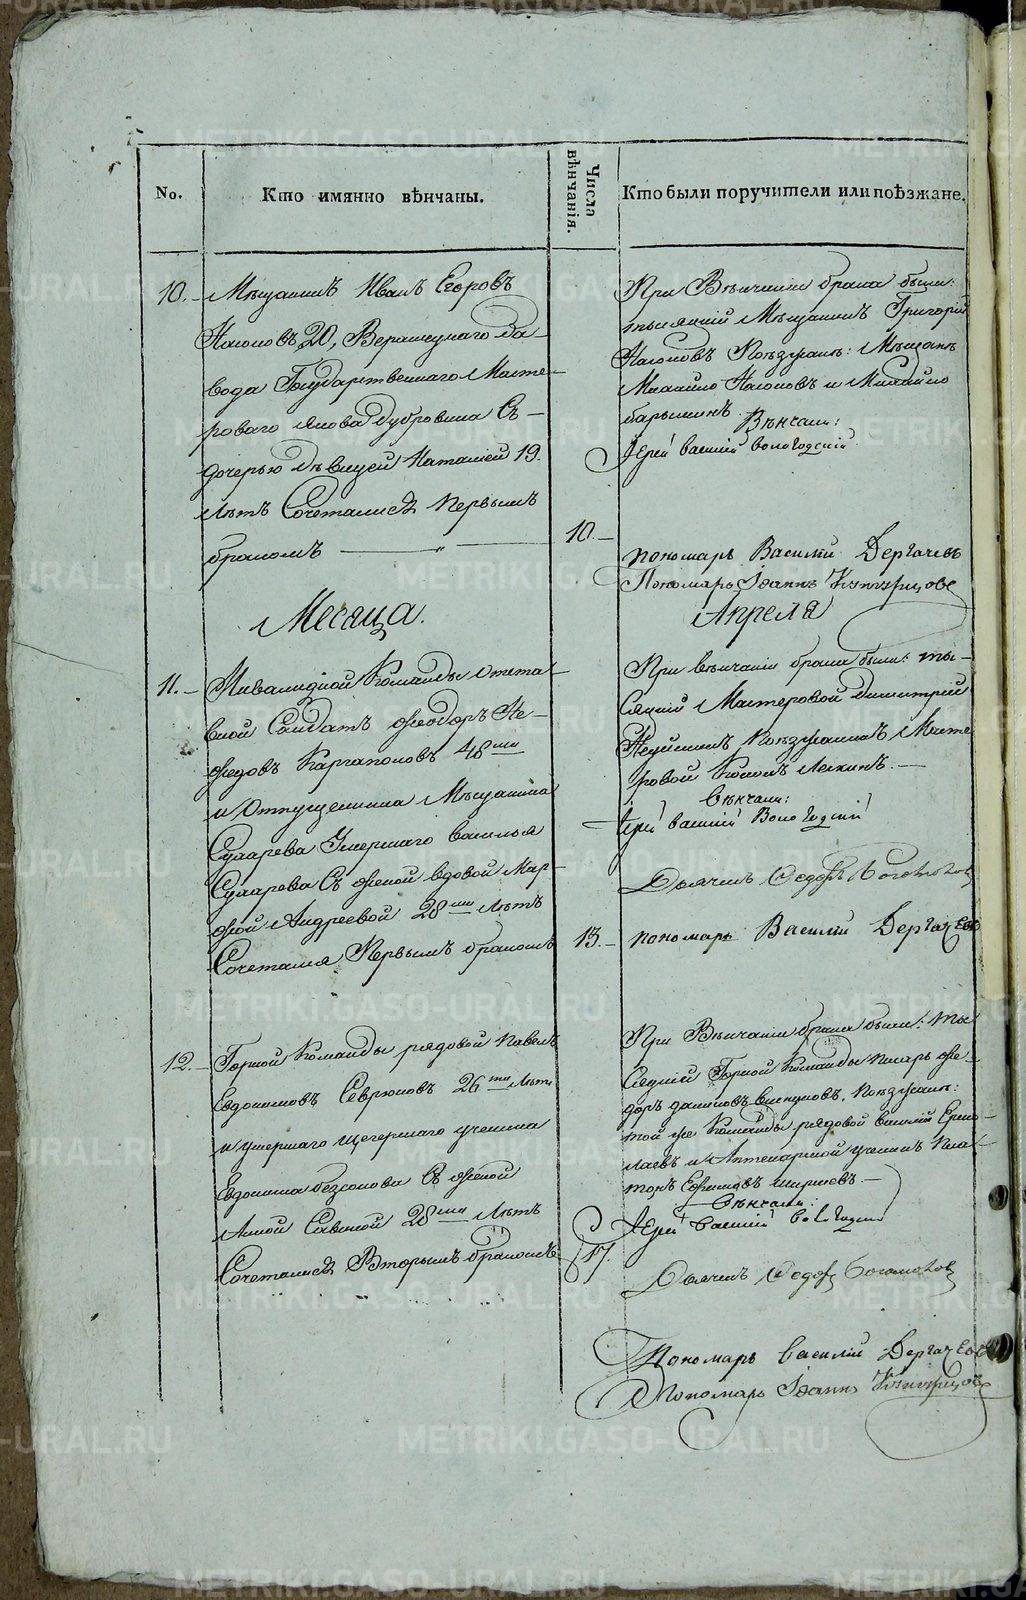 No.
Кто имянно вѣнчаны.
Числа вѣнчанія.
Кто были поручители или поѣзжане.
10.
Мѣщанинъ Иванъ Егоровъ
20, Верхъ
вода Государственнаго Масте-
роваго Якова Дубровина съ
дочерью дѣвицей Наталіей 19.
лѣтъ Сочетались первымъ
бракомъ
10.
При Вѣнчаніи брака были:
тысяцкій Мѣщанинъ Григорій
Поѣзжане: Мѣщане
Михайло и Михайло
барышниъ. Вѣнчали:
Іерей Василій Вологодскій
пономарь Василій Дергачевъ
Пономарь Іоаннъ
Месяца.
Апреля
11.
Инвалидной Команды отста-
вной Солдатъ Ѳеодоръ Не-
Ѳедовъ Каргаполовъ 48ми
и отпущенника Мѣщанина
Сухарева Умершаго Василья
Сухарева съ женой вдовой Мар-
ѳой Андреевой 28ми лѣтъ
Сочетался Первымъ бракомъ
13.
При вѣнчаніи брака были: ты-
сяцкій Мастеровой Димитрій
Поѣзжанинъ Масте
ровой
Вѣнчали:
Іерей Василій Вологодскій
Дьячекъ Ѳедоръ Богомоловъ
пономарь Василій Дергачевъ
12.
Горной Команды рядовой Павелъ
Евдокимовъ Севрюковъ 26ти лѣтъ
и умершаго ученика
Евдокима съ женой
Анной Саввиной 28ми лѣтъ
Сочетались Вторымъ бракомъ
17.
При Вѣнчаніи брака были: ты
сяцкій Горной Команды писарь Ѳе-
доръ Поѣзжане:
той же Команды рядовой Василій Ермо-
лаевъ и Аптекарской ученикъ Пла-
тонъ Ефимовъ
Вѣнчали:
Іерей Василій Вологодскій
Дьячекъ Ѳедоръ Богомоловъ
Пономарь Василій Дергачевъ
Пономарь Іоаннъ
METRIKI.GASO-URAL.RU